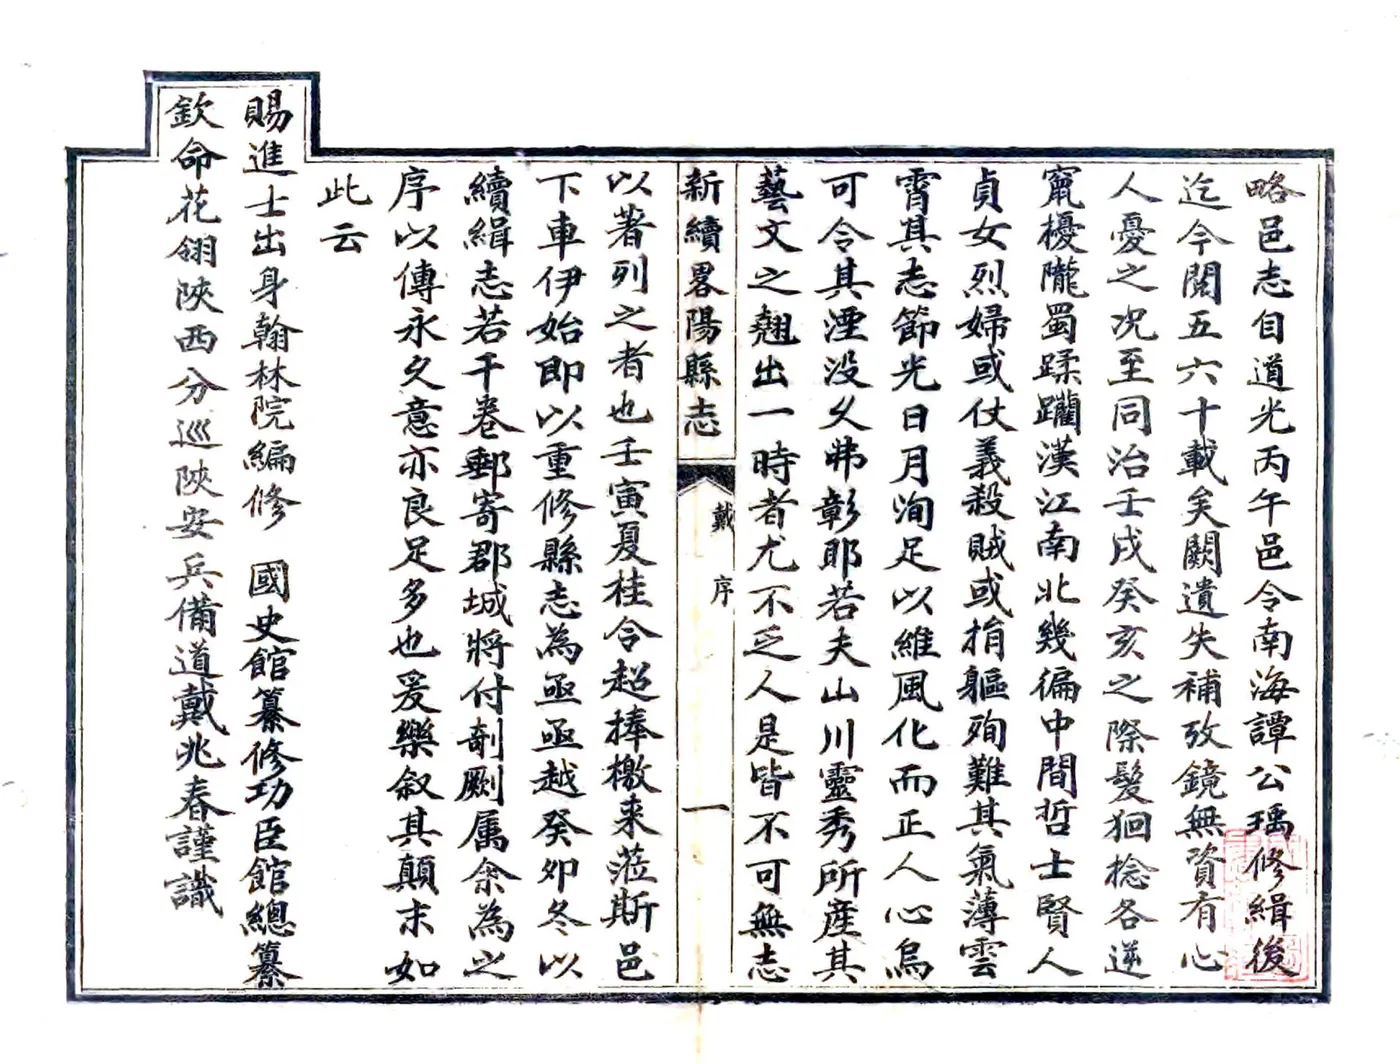 略邑志自道光丙午邑令南海譚公瑀修緝後
迄今閱五六十載矣闕遺失補攷鏡無資有心
人憂之況至同治壬戌癸亥之際髮狪捻各逆
竄擾隴蜀蹂躪漢江南北幾徧中間哲士賢人
貞女烈婦或仗義殺賊或捐軀殉難其氣薄雲
霄其志節光日月洵足以維風化而正人心烏
可令其湮没乆弗彰耶若夫山川靈秀所產其
藝文之翹出一時者尤不乏人是皆不可無志
新續畧陽縣志
戴序
一
以著列之者也壬寅夏桂令超捧檄来蒞斯邑
下車伊始即以重修縣志為亟亟越癸夘冬以
續緝志若干卷郵寄郡城將付剞劂属余為之
序以傳永乆意亦良足多也爰樂叙其顛末如
此云
賜進士出身翰林院編修 國史館纂修功臣館總纂
欽命花翎陝西分巡陝安兵備道戴兆春謹識